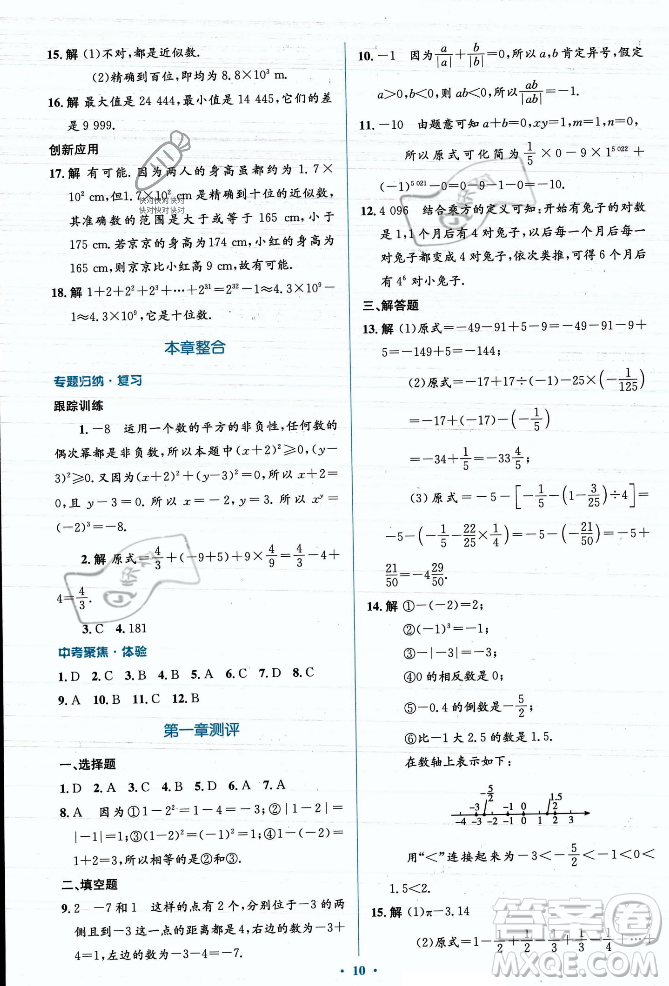 15. 解 (1)不对,都是近似数.
(2)精确到百位,即均为 8.8×10³ m.
16. 解 最大值是 24 444,最小值是 14 445,它们的差
是 9 999.
创新应用
17. 解 有可能. 因为两人的身高虽都为 1.7×
10² cm,但1.7×10² cm是精确到十位的近似数,
其准确数的范围是大于或等于 165 cm,小于
175 cm. 若京京的身高为 174 cm,小红的身高为
165 cm,则京京比小红高 9 cm,故有可能.
18. 解 1+2+2²+2³+⋯+2³¹=2³²-1≈4.3×10⁹
-1≈4.3×10⁹,故约为十位数.
本章整合
专题归纳·复习
跟踪训练
1. -8 运用一个数的平方的非负性,任何数的
偶次幂都是非负数,所以本题中(x+2)²≥0,(y-
3)²≥0. 又因为(x+2)²+(y-3)²=0,所以x+2=
0,且 y-3=0. 所以 x=-2,y=3. 所以 xʸ=
(-2)³=-8.
2. 解 原式=4/3+(-9+5)+9×4/9=4/3-4+
4=4/3.
3. C 4. 181
中考聚焦·体验
1. D 2. C 3. C 4. B 5. D 6. A 7. B 8. B
9. A 10. B 11. C 12. B
第一章测评
一、选择题
1. D 2. D 3. A 4. C 5. D 6. A 7. A
8. A 因为①1-2²=1-4=-3;②|1-2|=
|-1|=1;③(1-2)²=(-1)²=1;④1-(-2)=
1+2=3,所以结果为正数的有②③④.
二、填空题
9. 2 -7和1 这样的点有2个,分别位于-3的两
侧且到-3的距离都是4,右边的数为-3+
4=1,左边的数为-3-4=-7.
10. -1 因为a/|a|+b/|b|=0,所以a,b肯定异号,假定
a>0,b<0,则 ab<0,所以ab/|ab|=-1.
11. -10 由题意可知 a+b=0,xy=1,m=1,n=0,
所以原式可化简为 1/5×0-9×1⁵ ⁰²²+
(-1)⁵ ⁰²¹-0=0-9-1=-10.
12. 4 096 结合乘方的定义可知:开始有兔子的对数
是1,1个月后有4对兔子,以后每一对兔子每一
个月都变成4对兔子,依次类推,可得6个月后有 4⁶
对小兔子.
三、解答题
13. 解 (1)原式=-49-91+5-9=-49-91-9+
5=-149+5=-144.
(2)原式=-17+17÷(-1)-25×(-1/125)
=-17-17-(-1/5)
=-34+1/5=-33 4/5.
(3)原式=-5-[-1/5-(1-3/25)÷4]=
-5-(-1/5-22/25×1/4)=-5-(-21/50)=-5+
21/50=-4 29/50.
14. 解 ①-(-2)=2;
②(-1)³=-1;
③-|-3|=-3;
④0的相反数是0;
⑤-0.4的倒数是-5/2;
⑥比-1大2.5的数是1.5.
在数轴上表示如下:
-5/2 1.5
-4 -3 -2 -1 0 1 2 3 4
用"<"连接起来为-3<-5/2<-1<0<
1.5<2.
15. 解 (1)π-3.14
(2)原式=1-1/2+1/2-
10
快对快对快对
快对快对快对
快对
答案卷
MXQE.COM